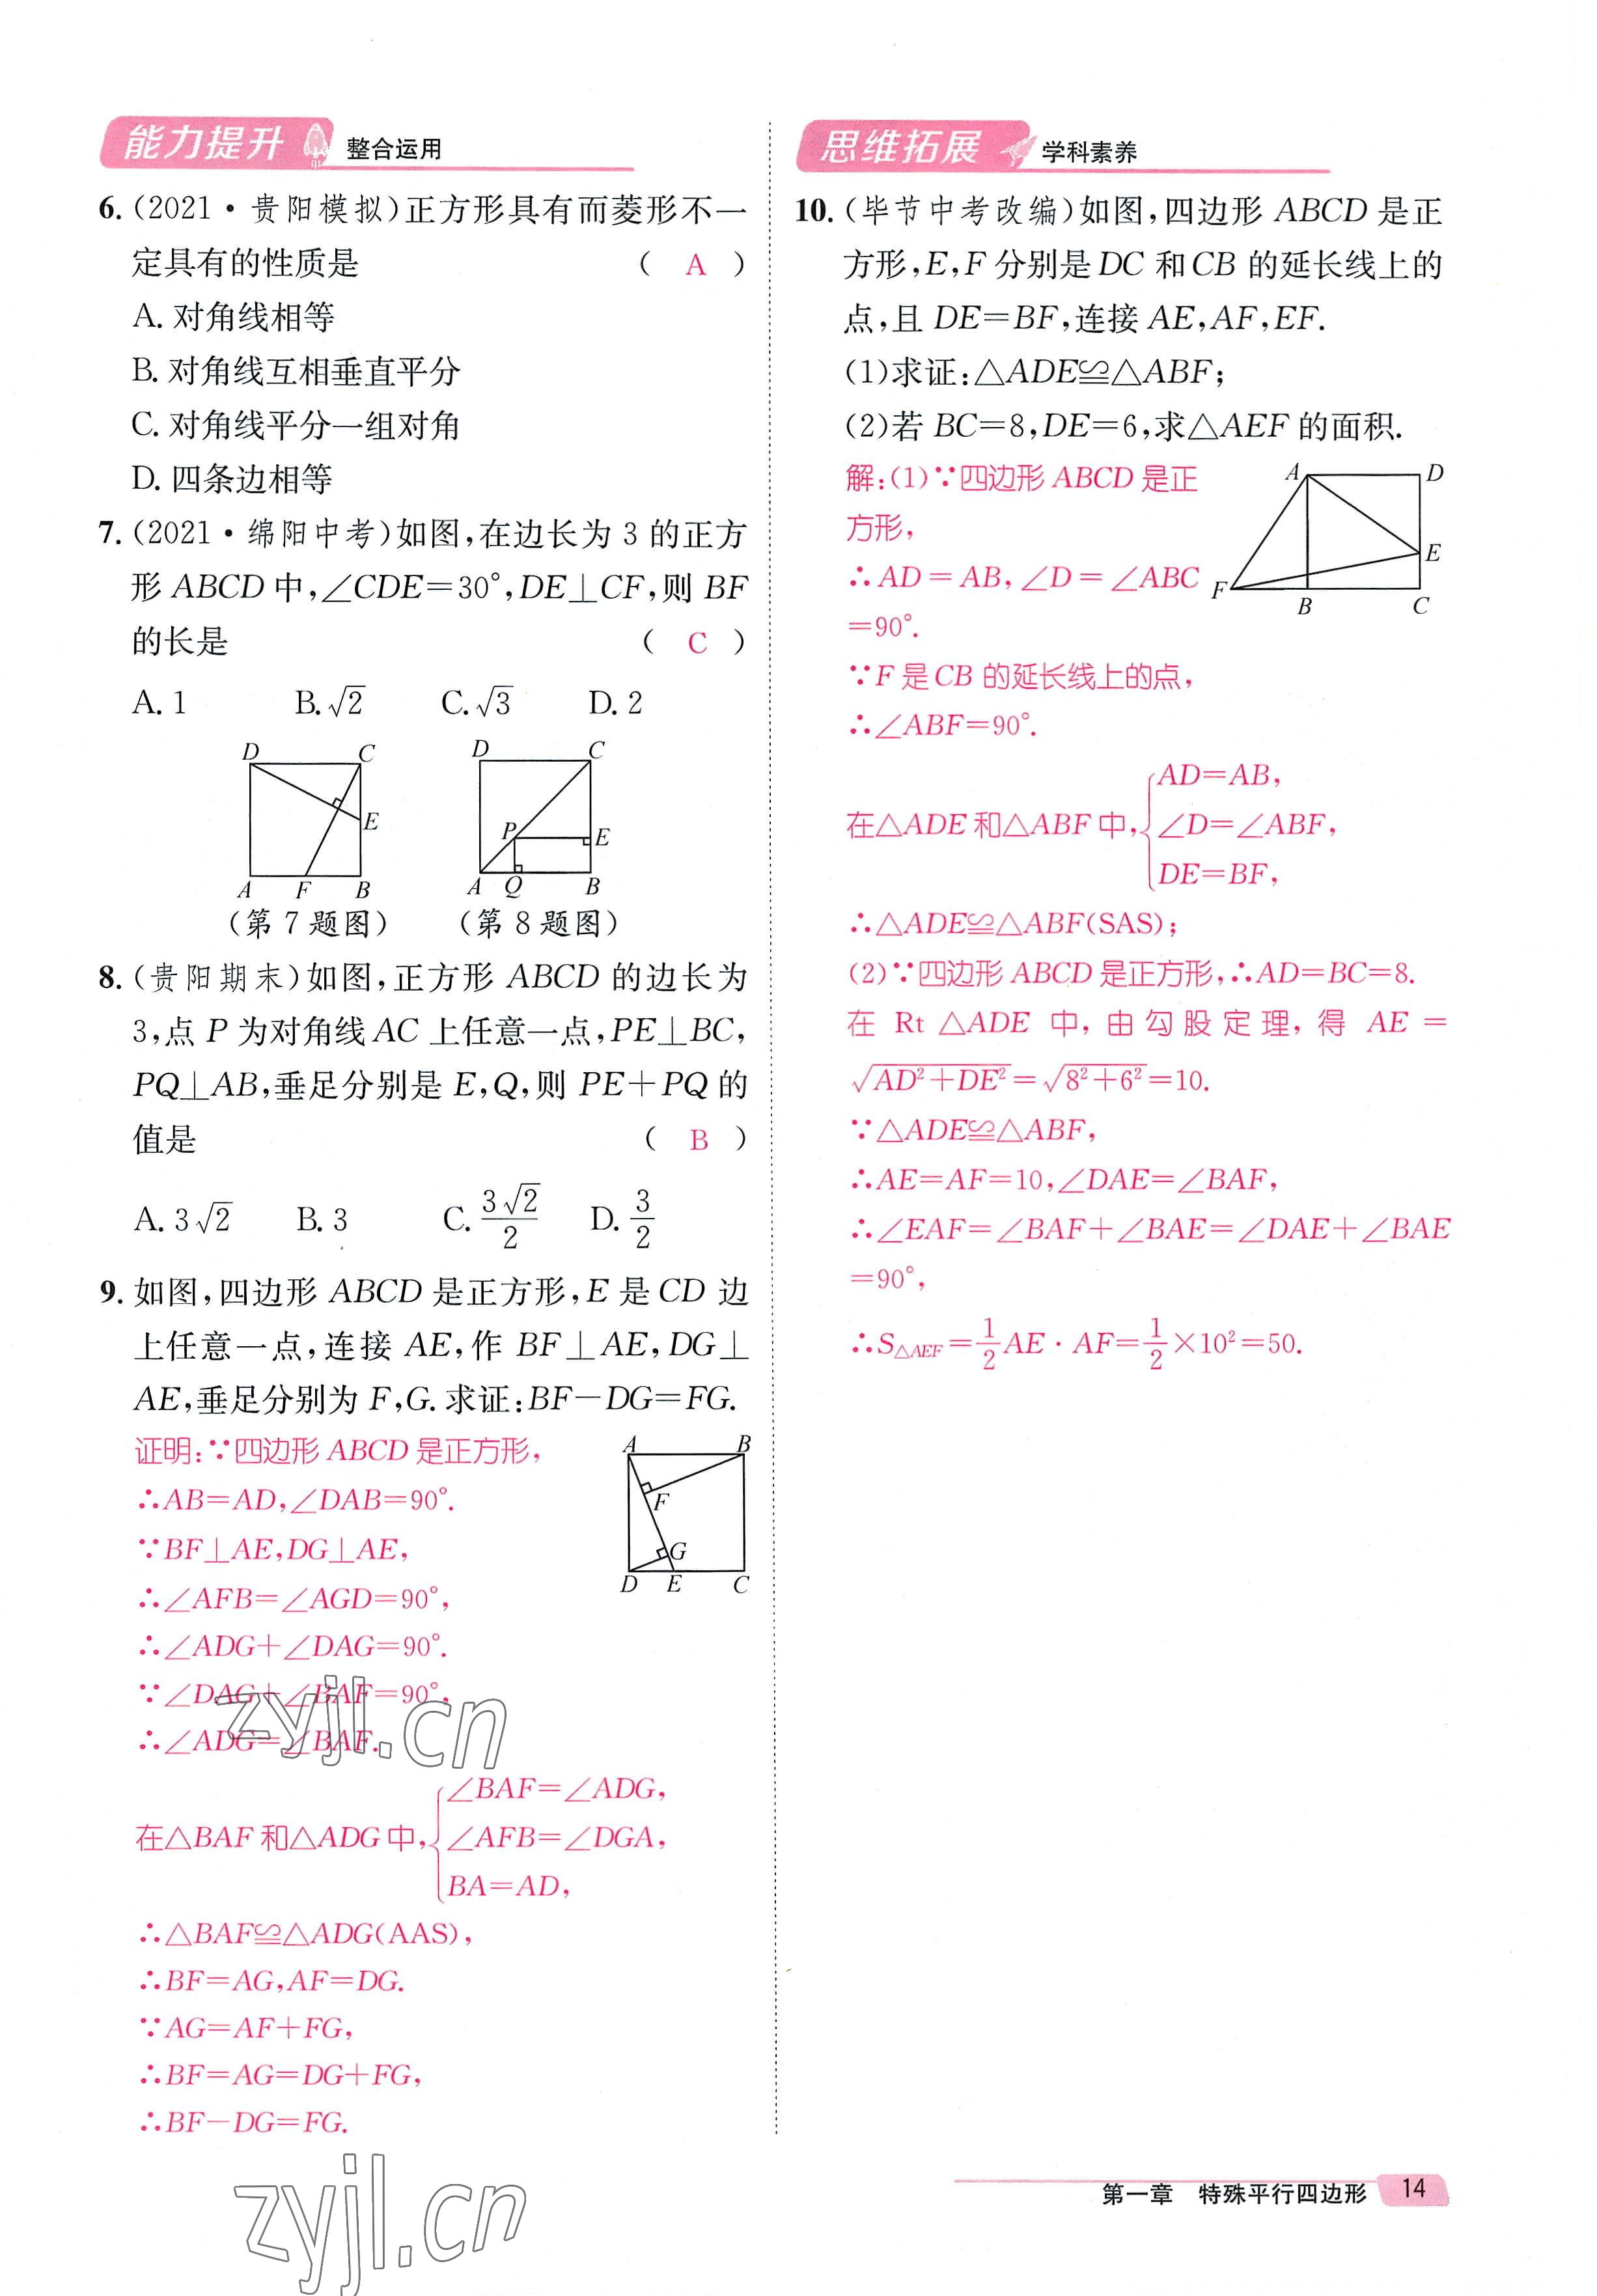 能力提升 整合运用
6.(2021·贵阳模拟)正方形具有而菱形不一
定具有的性质是 ( A )
A. 对角线相等
B. 对角线互相垂直平分
C. 对角线平分一组对角
D. 四条边相等
7.(2021·绵阳中考)如图,在边长为 3 的正方
形 ABCD 中,∠CDE=30°,DE⊥CF,则 BF
的长是 ( C )
A. 1 B. √2 C. √3 D. 2
D C E A F B
D C P E A Q B
(第 7 题图) (第 8 题图)
8.(贵阳期末)如图,正方形 ABCD 的边长为
3,点 P 为对角线 AC 上任意一点,PE⊥BC,
PQ⊥AB,垂足分别是 E,Q,则 PE+PQ 的
值是 ( B )
A. 3√2 B. 3 C. 3√2/2 D. 3/2
9. 如图,四边形 ABCD 是正方形,E 是 CD 边
上任意一点,连接 AE,作 BF⊥AE,DG⊥
AE,垂足分别为 F,G. 求证:BF-DG=FG.
证明:∵四边形 ABCD 是正方形,
∴AB=AD,∠DAB=90°.
∵BF⊥AE,DG⊥AE,
∴∠AFB=∠AGD=90°,
∴∠ADG+∠DAG=90°.
∵∠DAG+∠BAF=90°,
∴∠ADG=∠BAF.
A B F G D E C
在△BAF 和△ADG 中,
∠BAF=∠ADG,
∠AFB=∠DGA,
BA=AD,
∴△BAF≌△ADG(AAS),
∴BF=AG,AF=DG.
∵AG=AF+FG,
∴BF=AG=DG+FG,
∴BF-DG=FG.
思维拓展 学科素养
10.(毕节中考改编)如图,四边形 ABCD 是正
方形,E,F 分别是 DC 和 CB 的延长线上的
点,且 DE=BF,连接 AE,AF,EF.
(1)求证:△ADE≌△ABF;
(2)若 BC=8,DE=6,求△AEF 的面积.
解:(1)∵四边形 ABCD 是正
方形,
∴AD=AB,∠D=∠ABC
=90°.
A D E F B C
∵F 是 CB 的延长线上的点,
∴∠ABF=90°.
在△ADE 和△ABF 中,
AD=AB,
∠D=∠ABF,
DE=BF,
∴△ADE≌△ABF(SAS);
(2)∵四边形 ABCD 是正方形,∴AD=BC=8.
在 Rt △ADE 中,由勾股定理,得 AE=
√AD²+DE²=√8²+6²=10.
∵△ADE≌△ABF,
∴AE=AF=10,∠DAE=∠BAF,
∴∠EAF=∠BAF+∠BAE=∠DAE+∠BAE
=90°,
∴S△AEF=1/2AE·AF=1/2×10²=50.
zyjl.cn
zyjl.cn
第一章 特殊平行四边形 14